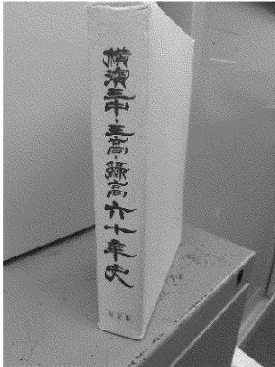 横濱三中・三高・緑高六十年史